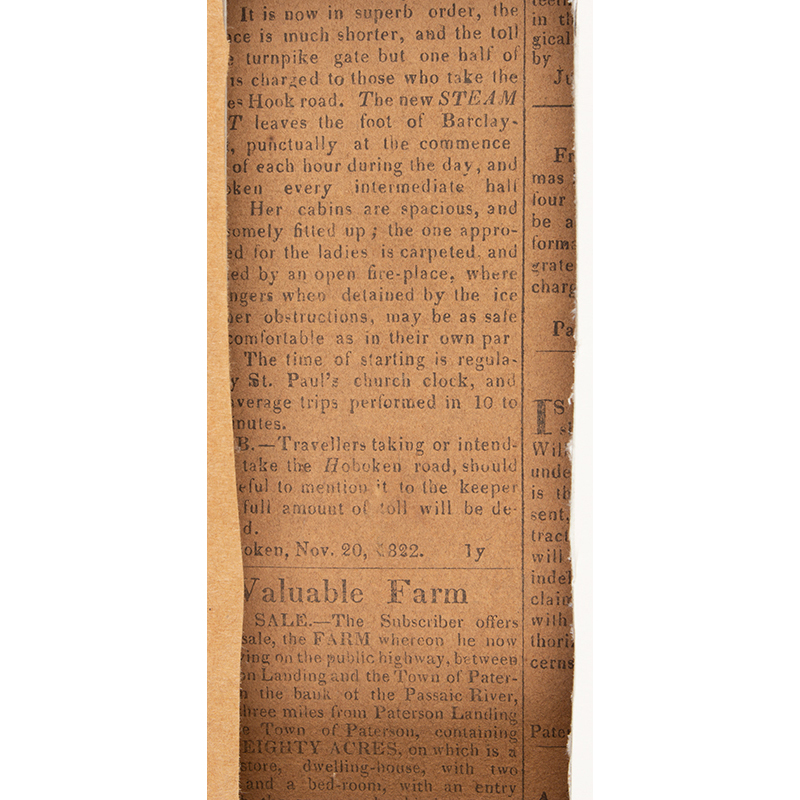 It is now in superb order, the
ce is much shorter, and the toll
turnpike gate but one half of
is charged to those who take the
es Hook road. The new STEAM
T leaves the foot of Barclay-
, punctually at the commence
of each hour during the day, and
oken every intermediate half
Her cabins are spacious, and
somely fitted up; the one appro-
ed for the ladies is carpeted, and
ed by an open fire-place, where
ngers when detained by the ice
her obstructions, may be as safe
comfortable as in their own par
The time of starting is regula-
y St. Paul's church clock, and
average trips performed in 10 to
inutes.
B.—Travellers taking or intend-
take the Hoboken road, should
eful to mention it to the keeper
full amount of toll will be de-
d.
oken, Nov. 20, 1822. 1y
Valuable Farm
SALE.—The Subscriber offers
sale, the FARM whereon he now
ing on the public highway, between
on Landing and the Town of Pater-
n the bank of the Passaic River,
three miles from Paterson Landing
e Town of Paterson, containing
EIGHTY ACRES, on which is a
store, dwelling-house, with two
and a bed-room, with an entry
in th
gical
by
Ju
Fr
mas
four
be a
forma
grate
charg
Pa
IS
st
Will
unde
is th
sent,
tract
will
indel
claim
with
thori
cerns
Pate